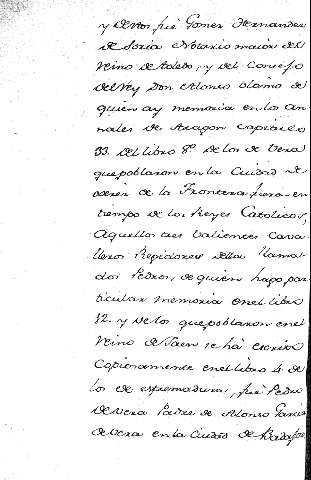 y de los fué Gomez Hernandez
de Soria Notario maior del
Reino de Toledo, y del Consejo
del Rey Don Alonso olaimo de
quien ay memoria en los an-
nales de Aragon capitulo
33. del libro 8º de los de Vera
que poblaron en la Ciudad de
xerez de la Frontera fueron en
tiempo de los Reyes Catolicos,
Aquellos tres valientes Cava-
lleros Regidores della llama-
dos Pedros, de quien hago par-
ticular memoria en el libro
12. y de los que poblaron en el
Reino de Jaen se há escrito
Copiosamente en el libro 4. de
los de estremadura, fué Pedro
de vera Padre de Alonso Garcia
de vera en la Ciudad de Badajoz